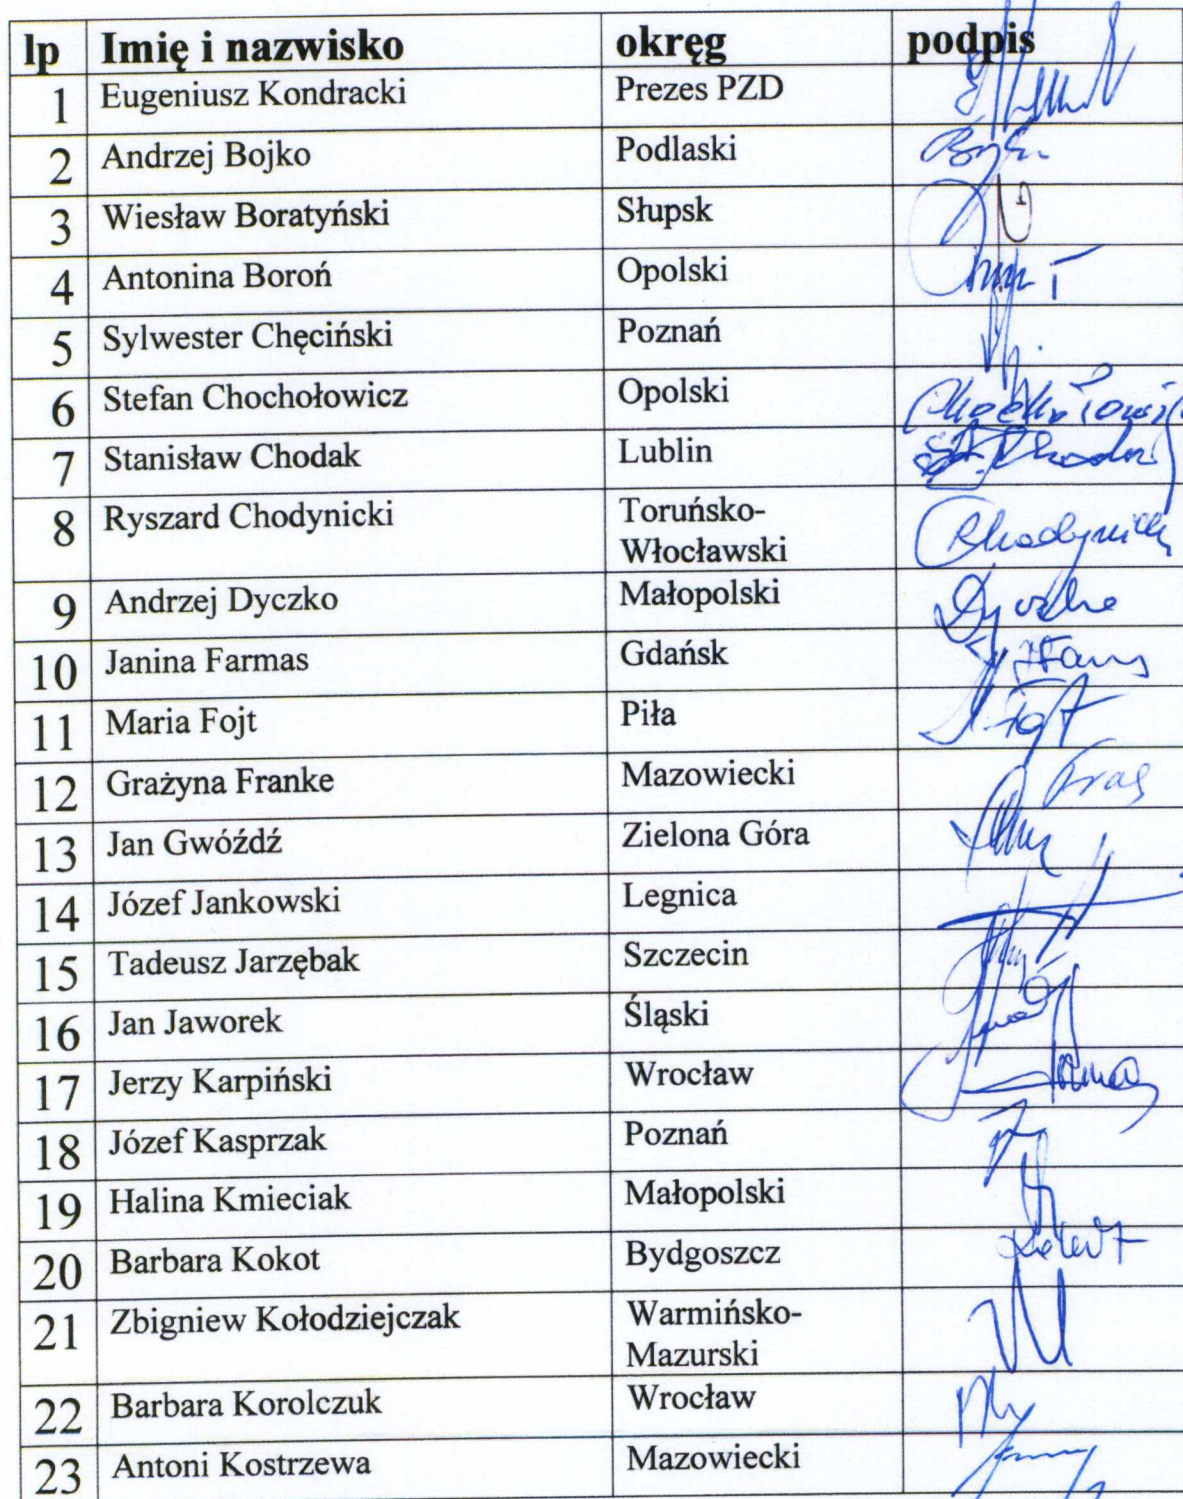 lp Imię i nazwisko okręg podpis
1 Eugeniusz Kondracki Prezes PZD
2 Andrzej Bojko Podlaski
3 Wiesław Boratyński Słupsk
4 Antonina Boroń Opolski
5 Sylwester Chęciński Poznań
6 Stefan Chochołowicz Opolski
7 Stanisław Chodak Lublin
8 Ryszard Chodynicki Toruńsko-
Włocławski
9 Andrzej Dyczko Małopolski
10 Janina Farmas Gdańsk
11 Maria Fojt Piła
12 Grażyna Franke Mazowiecki
13 Jan Gwóźdź Zielona Góra
14 Józef Jankowski Legnica
15 Tadeusz Jarzębak Szczecin
16 Jan Jaworek Śląski
17 Jerzy Karpiński Wrocław
18 Józef Kasprzak Poznań
19 Halina Kmieciak Małopolski
20 Barbara Kokot Bydgoszcz
21 Zbigniew Kołodziejczak Warmińsko-
Mazurski
22 Barbara Korolczuk Wrocław
23 Antoni Kostrzewa Mazowiecki